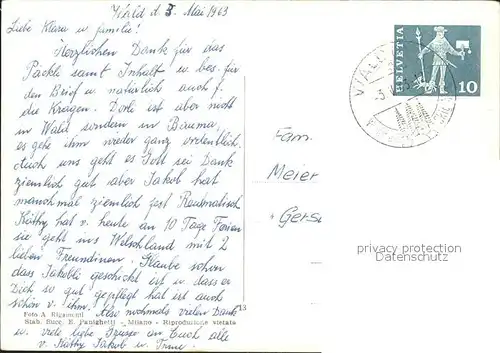 Wald d. 3. Mai 1963
Liebe Klara u familie!
Herzlichen Dank für das
Päckli samt Inhalt u. bes. für
den Brief u natürlich auch f.
die Kragen. Dorli ist aber nicht
in Wald sondern in Bauma,
es gehe ihm wieder ganz ordentlich.
Auch uns geht es Gott sei Dank
ziemlich gut aber Jakob hat
manchmal ziemlich fest Reumatisch
Käthy hat v. heute an 10 Tage Ferien
sie geht ins Welschland mit 2
lieben Freundinen. Glaube schon
dass Jakobli geschickt ist u dass er
Dich so gut gepflegt hat ist auch
schön v. ihm. Also nochmals vielen Dank
u. viel liebe Grüsse an Euch alle
v. Käthy Jakob u.
Foto A. Rigamonti
Stab. Ruec. E. Panighetti - Milano - Riproduzione vietata
13
HELVETIA
10
WALD
Fam.
Meier
Gersa
privacy protection
oldthing.de